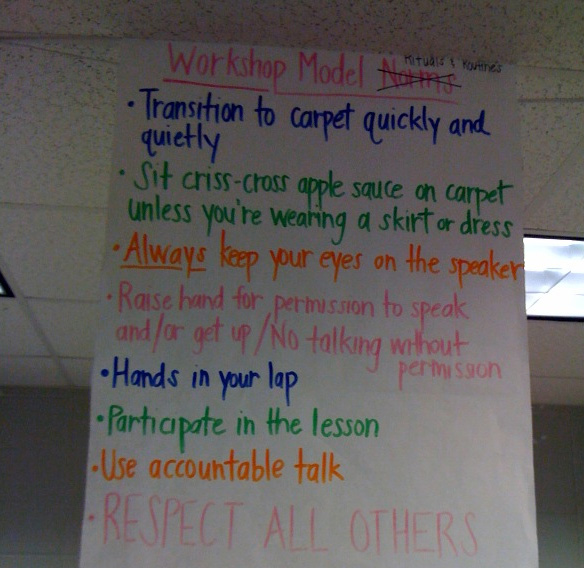 Rituals & Routines
Workshop Model Norms
• Transition to carpet quickly and
quietly
• Sit criss-cross apple sauce on carpet
unless you're wearing a skirt or dress
• Always keep your eyes on the speaker
• Raise hand for permission to speak
and/or get up/No talking without
permission
• Hands in your lap
• Participate in the lesson
• Use accountable talk
• RESPECT ALL OTHERS